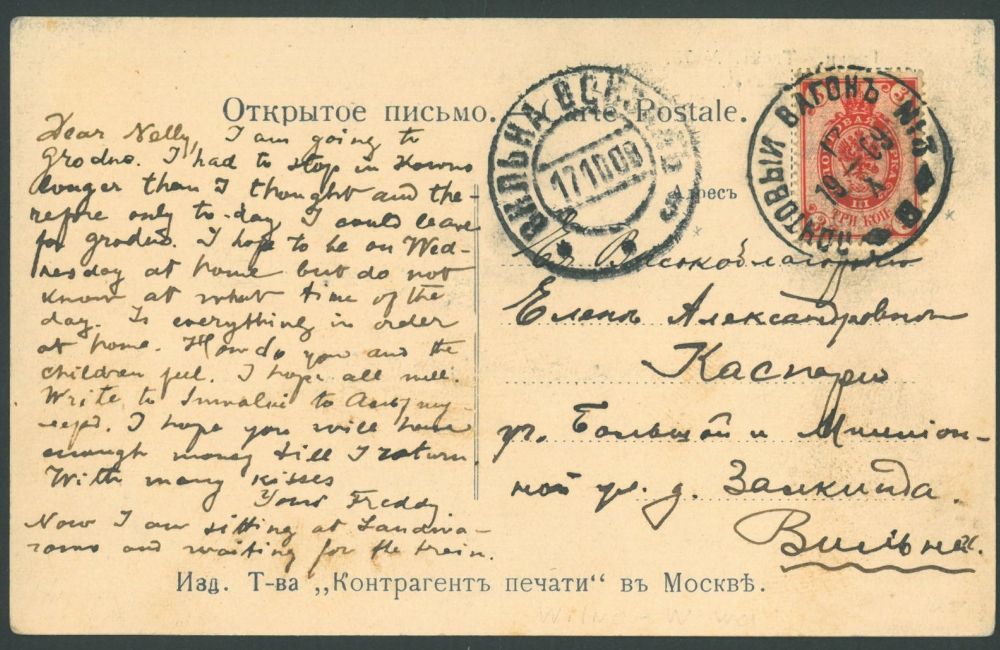 Открытое письмо. Carte Postale.
Dear Nelly, I am going to
Grodno. I had to stop in Kowno
longer than I thought and the-
refore only to-day I could leave
for Grodno. I hope to be on Wed-
nesday at home but do not
know at what time of the
day. Is everything in order
at home. How do you and the
children feel. I hope all well.
Write to Suwalki to
I hope you will have
enough money till I return.
With many kisses
Your Freddy
Now I am sitting at Landwa-
rowo and waiting for the train.
ВИЛЬНА ВОКЗАЛЪ
17 10 08
ПОЧТОВЫЙ ВАГОНЪ №
ТРИ КОП.
Адресъ
Высокоблагородію
Еленѣ Александровнѣ
Касперъ
уг. Большой и Милліон-
ной ул. д. Залкинда.
Вильна.
Изд. Т-ва „Контрагентъ печати“ въ Москвѣ.